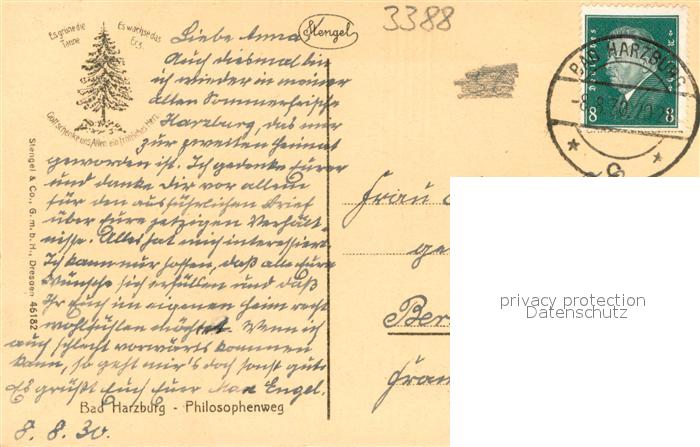 Es grüne die Tanne
Es wachse das Erz
Gott schenke uns Allen ein fröhliches Herz
Stengel
3388
Liebe Anna
Auch diesmal bin
ich wieder in meiner
alten Sommerfrische
Harzburg, das mir
zur zweiten Heimat
geworden ist. Ich gedenke Eurer
und danke Dir vor allem
für den ausführlichen Brief
über Eure jetzigen Verhält-
nisse. Alles hat mich interessiert.
Ich kann nur hoffen, daß alle Eure
Wünsche sich erfüllen und daß
Ihr Euch im eigenen Heim recht
wohlfühlen möchtet. Wenn ich
auch schlecht vorwärts kommen
kann, so geht mir's doch sonst gut.
Es grüßt Euch Euer Max Engel.
Bad Harzburg - Philosophenweg
8. 8. 30.
Stengel & Co., G. m. b. H., Dresden 46182
BAD HARZBURG
-8.8.30.
8 8
Frau
Ber
privacy protection
Datenschutz